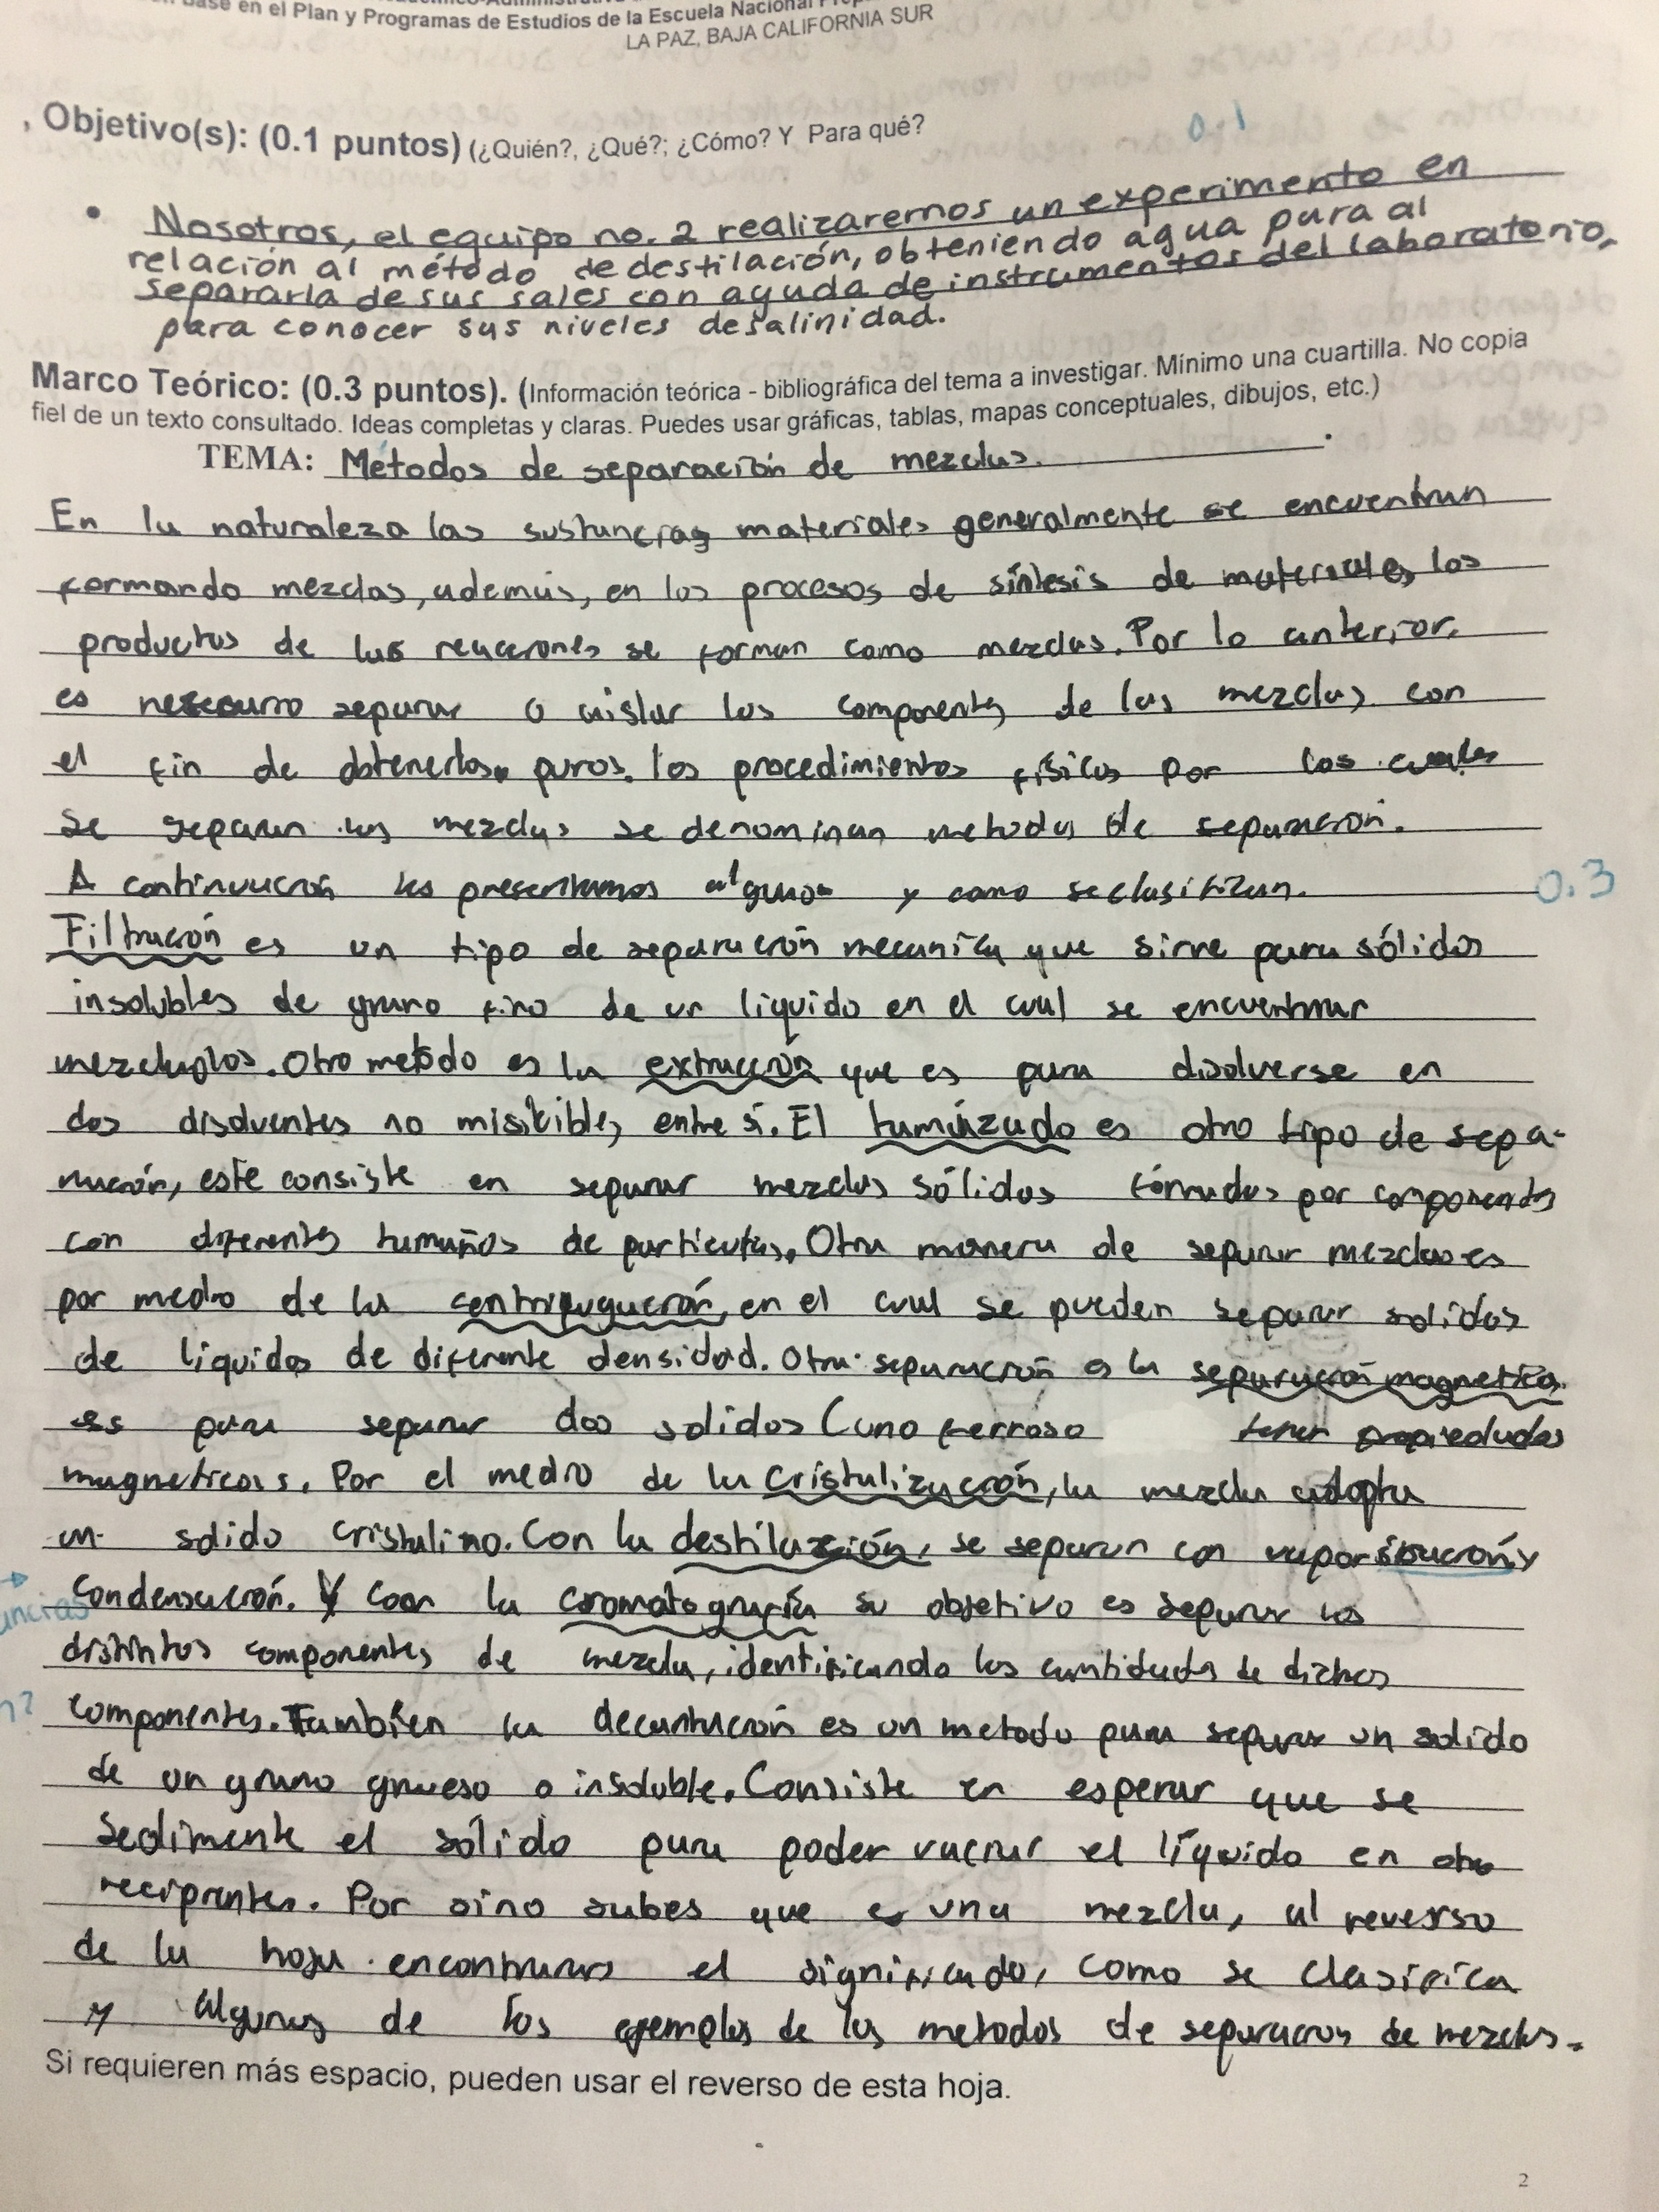 base en el Plan y Programas de Estudios de la Escuela Nacional
LA PAZ, BAJA CALIFORNIA SUR
, Objetivo(s): (0.1 puntos) (¿Quién?, ¿Qué?; ¿Cómo? Y Para qué?
0.1
• Nosotros, el equipo no. 2 realizaremos un experimento en
relación al método de destilación, obteniendo agua pura al
separarla de sus sales con ayuda de instrumentos del laboratorio,
para conocer sus niveles de salinidad.
Marco Teórico: (0.3 puntos). (Información teórica - bibliográfica del tema a investigar. Mínimo una cuartilla. No copia
fiel de un texto consultado. Ideas completas y claras. Puedes usar gráficas, tablas, mapas conceptuales, dibujos, etc.)
TEMA: Métodos de separación de mezclas.
En la naturaleza las sustancias materiales generalmente se encuentran
formando mezclas, además, en los procesos de síntesis de materiales los
productos de las reacciones se forman como mezclas. Por lo anterior,
es separar o aislar los componentes de las mezclas con
el fin de obtenerlos puros. los procedimientos físicos por los cuales
se separan las mezclas se denominan metodos de separación.
A continuación les presentamos algunos y como se clasifican.
0.3
Filtración es un tipo de separación mecanica que sirve para sólidos
insolubles de grano fino de un liquido en el cual se encuentran
mezclados. Otro metodo es la extracción que es para disolverse en
dos disolventes no entre sí. El tamizado es otro tipo de sepa-
ración, este consiste en separar mezclas sólidas formadas por componentes
con diferentes tamaños de particulas. Otra manera de separar mezclas es
por medio de la centrifugación, en el cual se pueden separar solidos
de liquidos de diferente densidad. Otra separación es la separación magnetica
es para separar dos solidos (uno ferroso tener propiedades
magneticas. Por el medio de la cristalización, la mezcla adopta
un solido cristalino. Con la destilación, se separan con y
condensación. Y con la cromatografía su objetivo es separar los
distintos componentes de mezcla, identificando las cantidades de dichos
componentes. También la decantación es un metodo para separar un solido
de un grano grueso o insoluble. Consiste en esperar que se
sedimente el sólido para poder vaciar el líquido en otro
recipientes. Por sino sabes que es una mezcla, al reverso
de la hoja encontraras el significado, como se clasifica
y algunos de los ejemplos de los metodos de separacion de mezclas.
Si requieren más espacio, pueden usar el reverso de esta hoja.
2